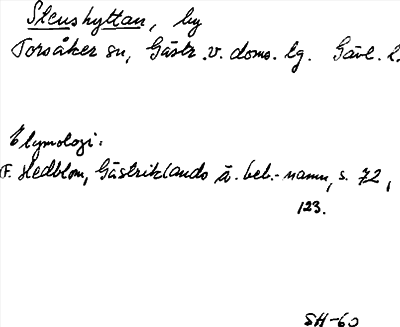 Stenshyttan, by
Torsåker sn, Gästr. v. doms. lg. Gävl. l.
Etymologi:
F. Hedblom, Gästriklands ä. beb.-namn, s. 72,
123.
SH-60